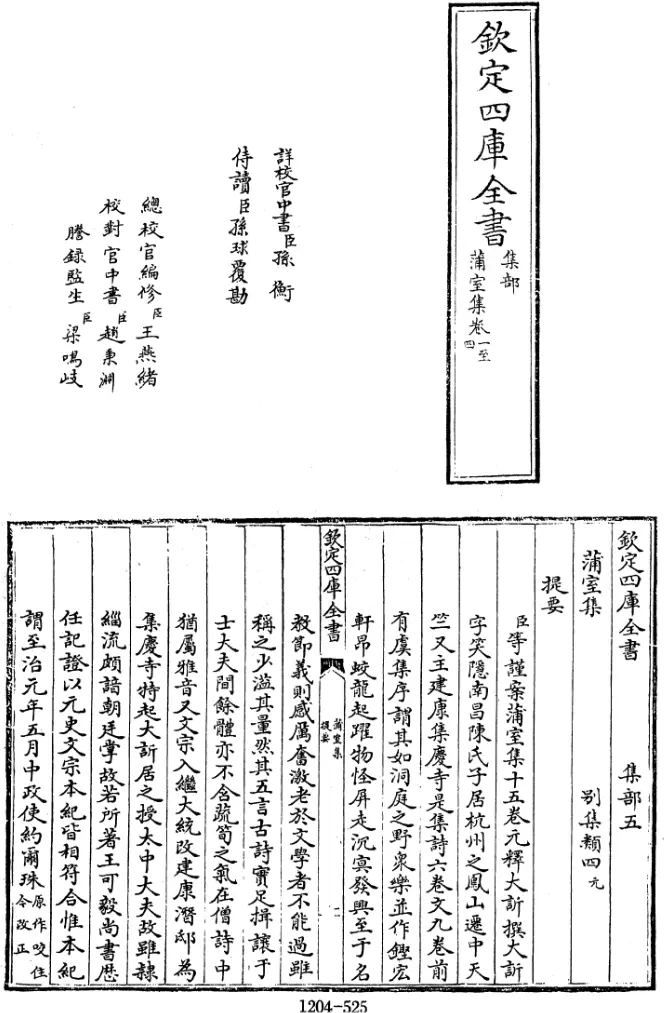 欽定四庫全書
集部
蒲室集卷一至四
詳校官中書臣孫衡
侍讀臣孫球覆勘
總校官編修臣王燕緒
校對官中書臣趙秉淵
謄錄監生臣梁鳴岐
欽定四庫全書 集部五
蒲室集 别集類四元
提要
臣等謹案蒲室集十五卷元釋大訢撰大訢
字笑隱南昌陳氏子居杭州之鳳山遷中天
竺又主建康集慶寺是集詩六卷文九卷前
有虞集序謂其如洞庭之野衆樂並作鏗宏
軒昂蛟龍起躍物怪屏走沉冥發興至于名
欽定四庫全書
蒲室集
提要
二
教節義則感厲奮激老於文學者不能過雖
稱之少溢其量然其五言古詩實足揖讓于
士大夫間餘體亦不含蔬筍之氣在僧詩中
猶屬雅音又文宗入繼大統改建康潛邸為
集慶寺特起大訢居之授太中大夫故雖隸
緇流頗諳朝廷掌故若所著王可毅尚書歴
任記證以元史文宗本紀皆相符合惟本紀
謂至治元年五月中政使約爾珠原作咬住今改正
1204-525